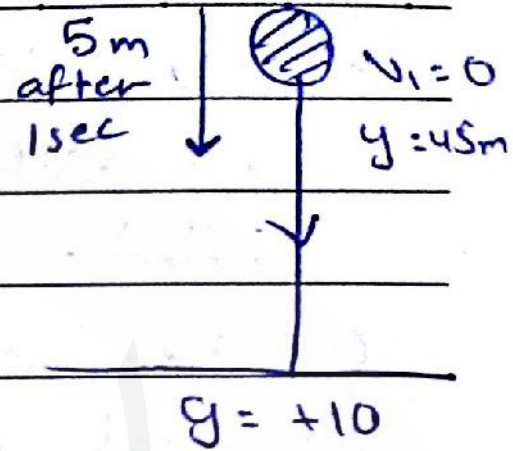 5m
after
1sec
V₁ = 0
y = 45m
g = +10